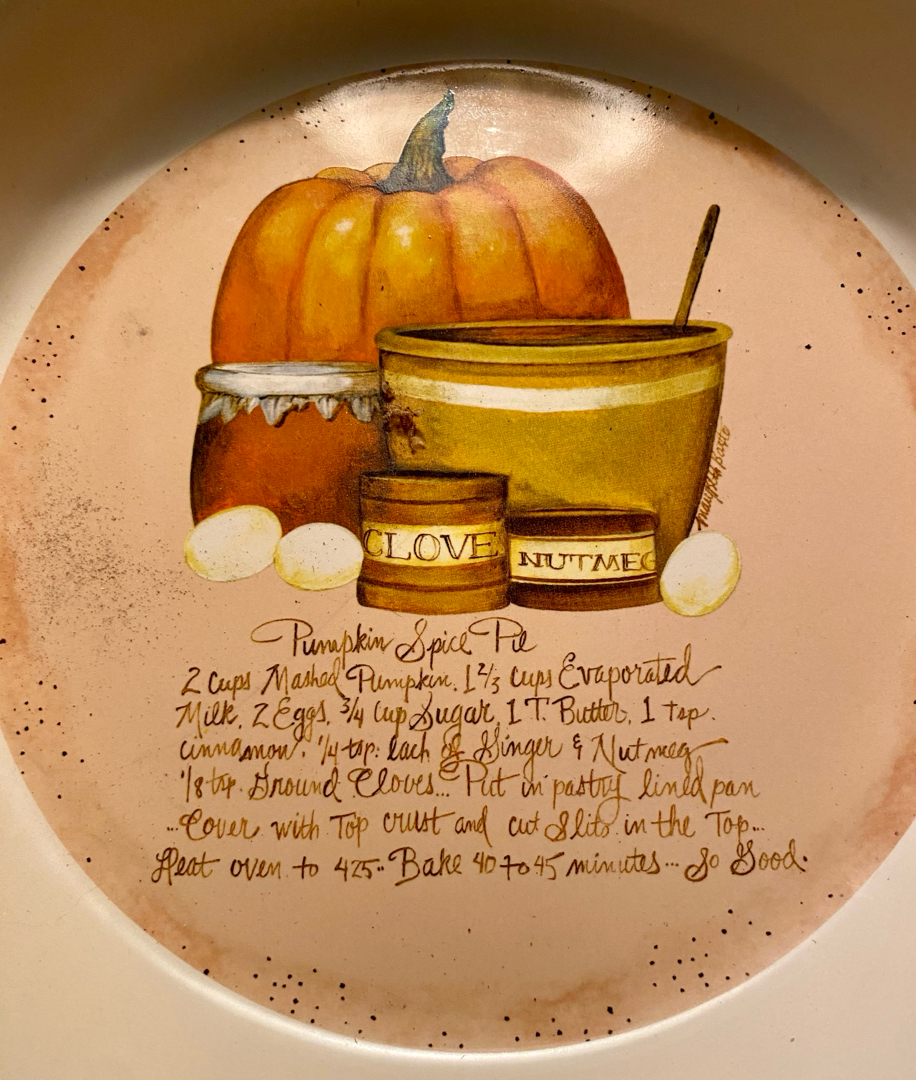 CLOVE
NUTMEG
Pumpkin Spice Pie
2 Cups Mashed Pumpkin. 1 2/3 cups Evaporated
Milk, 2 Eggs, 3/4 Cup Sugar, 1 T. Butter, 1 tsp.
cinnamon. 1/4 tsp. each of Ginger & Nutmeg
1/8 tsp. Ground Cloves... Put in pastry lined pan
...Cover with Top crust and cut Slits in the Top...
Heat oven to 425.. Bake 40 to 45 minutes... So Good.